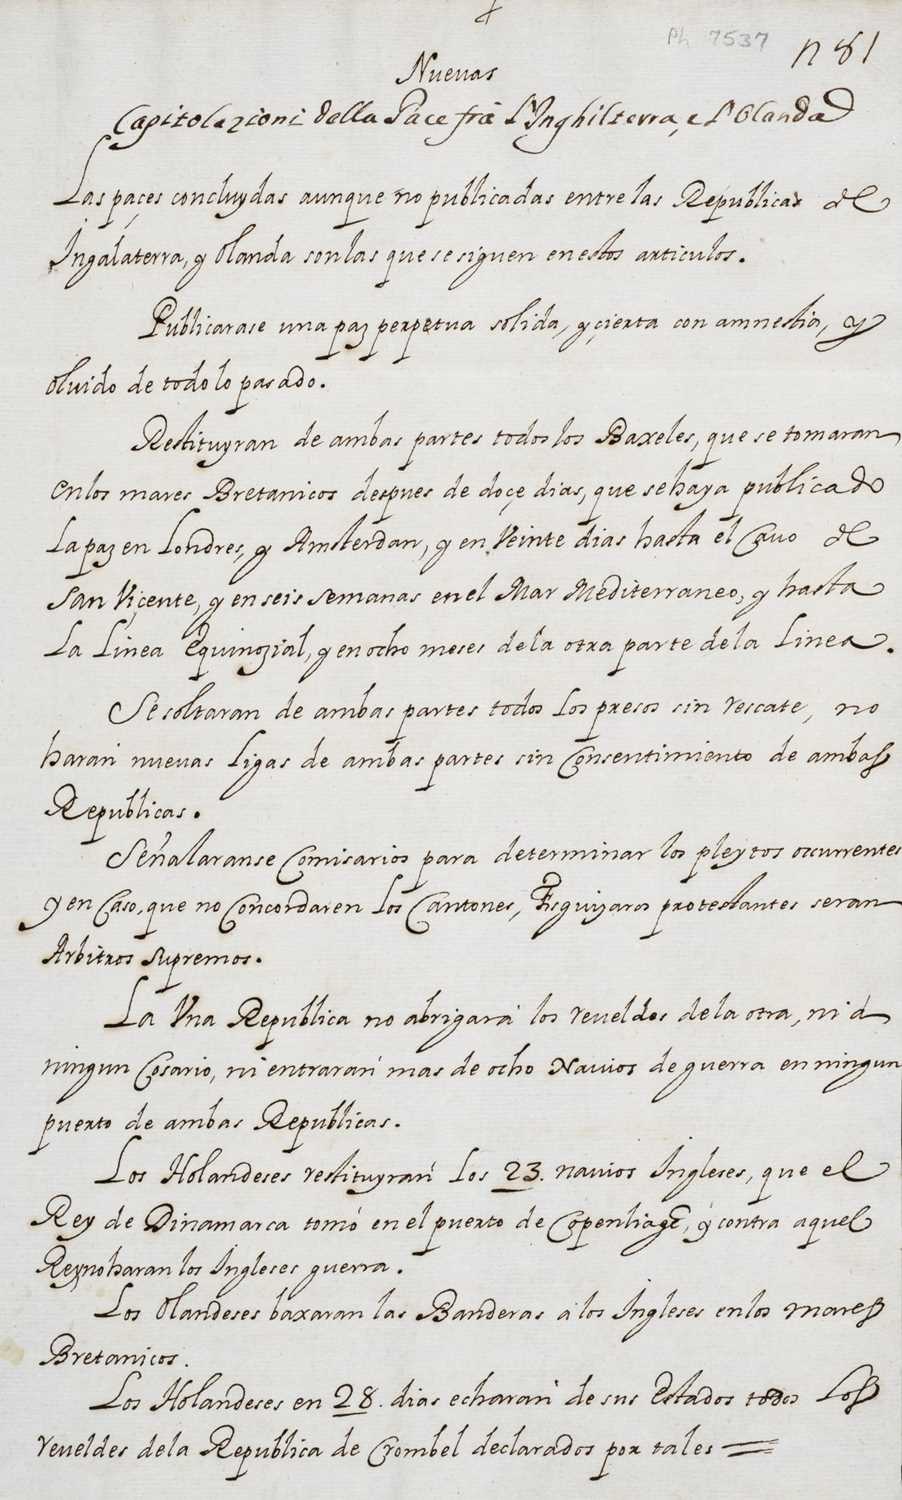 Ph 7537
n 81
Nuevas
Capitolazioni della Pace frà l'Inghilterra, e l'Olanda
Las paçes concluydas aunque no publicadas entre las Republicas de
Ingalaterra, y Olanda son las que se siguen en estos articulos.
Publicarase una paz perpetua solida, y çierta con amnestia, y
olvido de todo lo pasado.
Restituyran de ambas partes todos los Baxeles, que se tomaran
en los mares Bretanicos despues de doçe dias, que se haya publicado
la paz en Londres, y Amsterdan, y en Veinte dias hasta el Cavo de
San Viçente, y en seis semanas en el Mar Mediterraneo, y hasta
La Linea Equinozial, y en ocho meses de la otra parte de la Linea.
Se soltaran de ambas partes todos los presos sin rescate, no
haràn nuevas Ligas de ambas partes sin Consentimiento de ambas
Republicas.
Señalaranse Comisarios para determinar los pleytos occurrentes
y en Caso, que no Concordaren los Cantones, Esguizaros protestantes seran
Arbitros supremos.
La Vna Republica no abrigarà los reveldes de la otra, ni à
ningun Cosario, ni entraràn mas de ocho Navios de guerra en ningun
puerto de ambas Republicas.
Los Holandeses restituyràn los 23. navios Ingleses, que el
Rey de Dinamarca tomò en el puerto de Copenhage, y contra aquel
Reyno haran los Ingleses guerra.
Los Olandeses baxaran las Banderas à los Ingleses en los mares
Bretanicos.
Los Holandeses en 28. dias echaràn de sus Estados todos los
reveldes de la Republica de Crombel declarados por tales